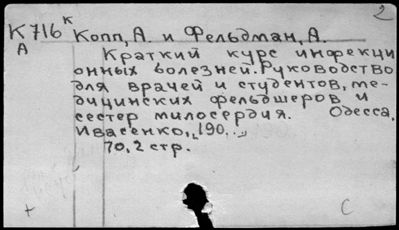 2
К716 к Копп, А. и Фельдман, А.
А
Краткий курс инфекци
онных болезней. Руководство
для врачей и студентов, ме-
дицинских фельдшеров и
сестер милосердия. Одесса,
Ивасенко, "190.."
70, 2 стр.
+ С